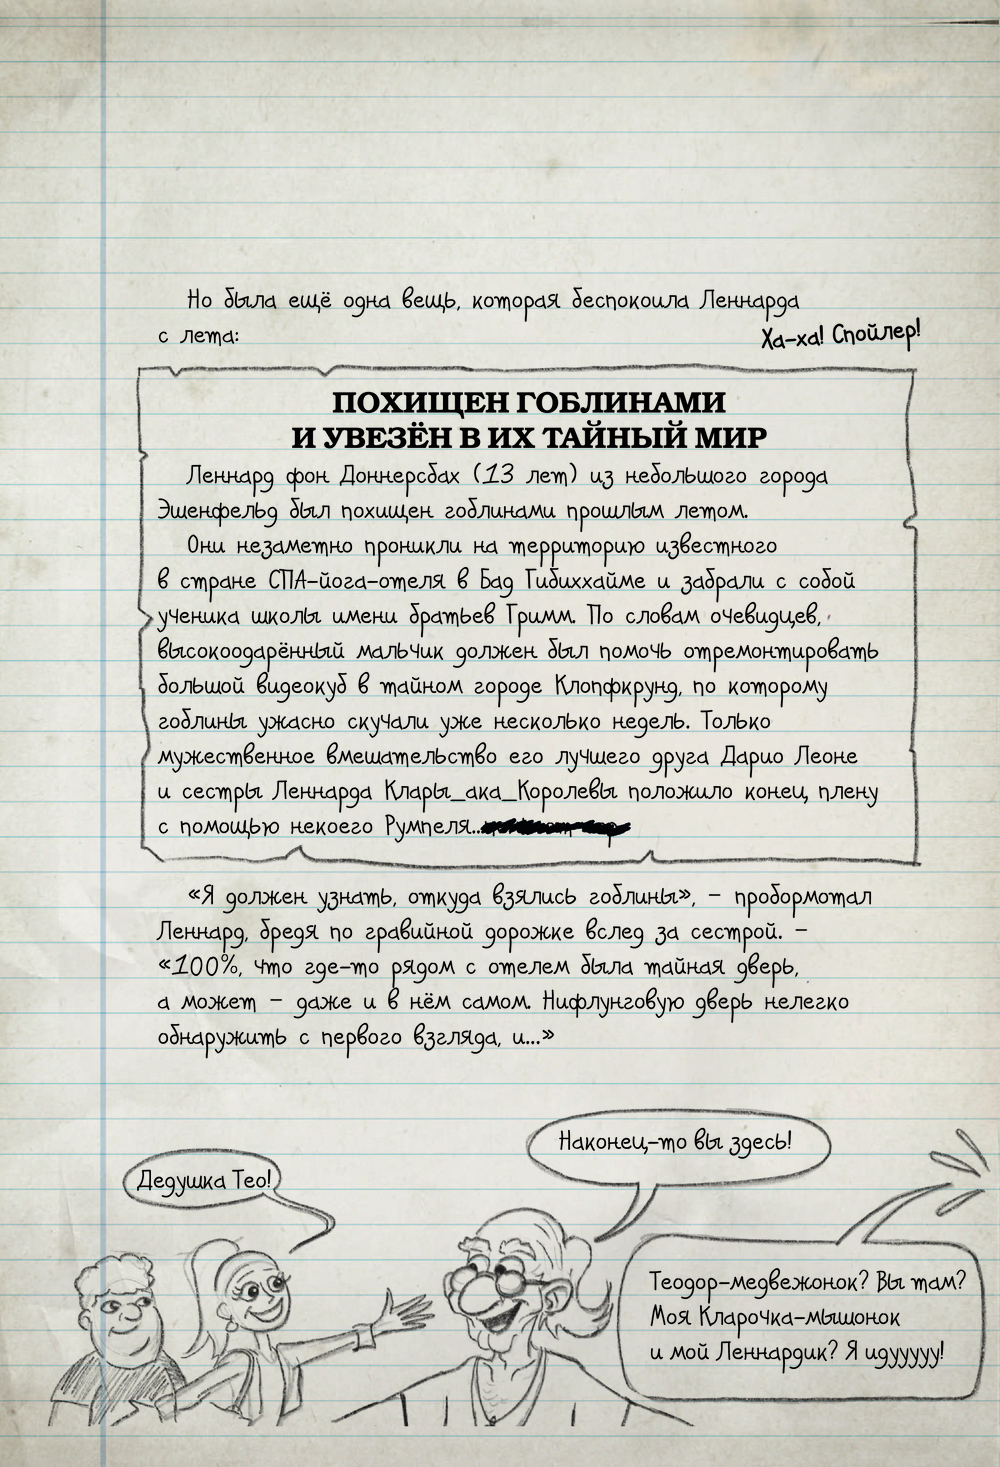 Но была ещё одна вещь, которая беспокоила Леннарда
с лета:
Ха-ха! Спойлер!
ПОХИЩЕН ГОБЛИНАМИ
И УВЕЗЁН В ИХ ТАЙНЫЙ МИР
Леннард фон Доннерсбах (13 лет) из небольшого города
Эшенфельд был похищен гоблинами прошлым летом.
Они незаметно проникли на территорию известного
в стране СПА-йога-отеля в Бад Гибиххайме и забрали с собой
ученика школы имени братьев Гримм. По словам очевидцев,
высокоодарённый мальчик должен был помочь отремонтировать
большой видеокуб в тайном городе Клопфкрунд, по которому
гоблины ужасно скучали уже несколько недель. Только
мужественное вмешательство его лучшего друга Дарио Леоне
и сестры Леннарда Клары_ака_Королевы положило конец плену
с помощью некоего Румпеля...
«Я должен узнать, откуда взялись гоблины», – пробормотал
Леннард, бредя по гравийной дорожке вслед за сестрой. –
«100%, что где-то рядом с отелем была тайная дверь,
а может – даже и в нём самом. Нифлунговую дверь нелегко
обнаружить с первого взгляда, и...»
Наконец-то вы здесь!
Дедушка Тео!
Теодор-медвежонок? Вы там?
Моя Кларочка-мышонок
и мой Леннардик? Я идууууу!